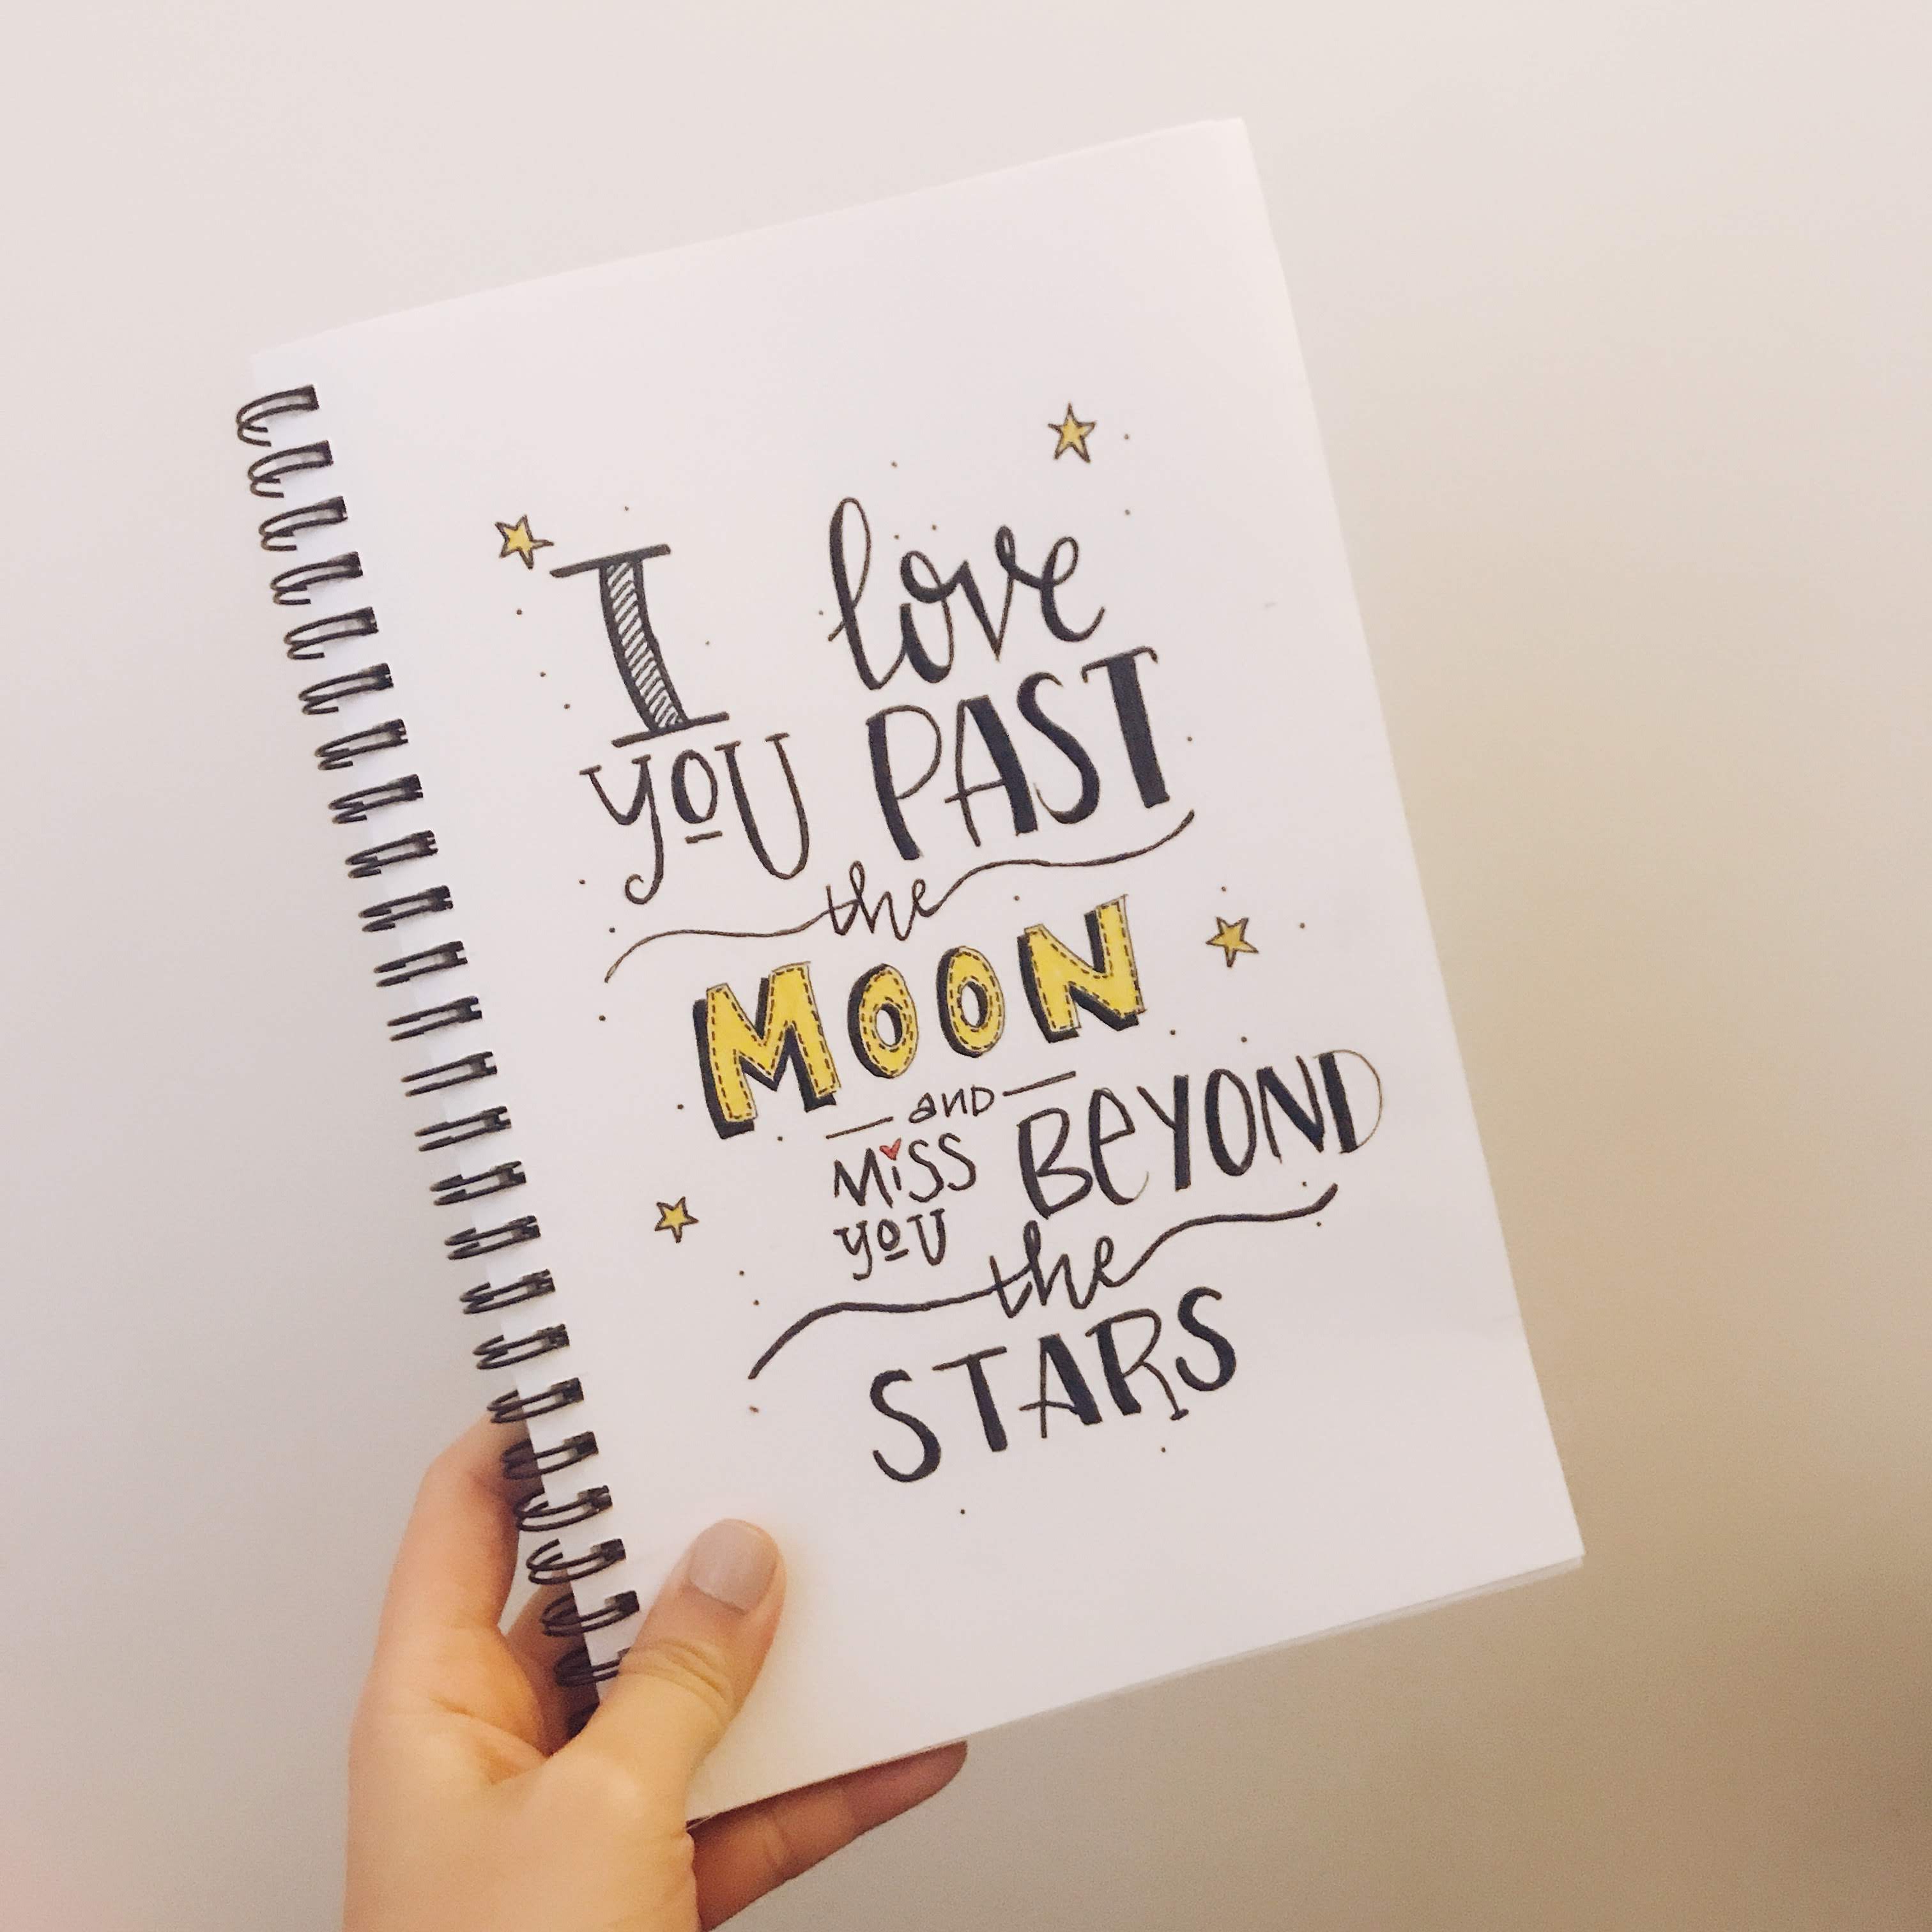 I love
you PAST
the
MOON
and
MiSS BeYOND
you
the
STARS